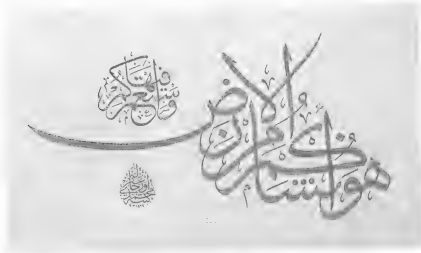 هُوَ أَنْشَأَكُمْ مِنَ الْأَرْضِ
وَاسْتَعْمَرَكُمْ فِيهَا